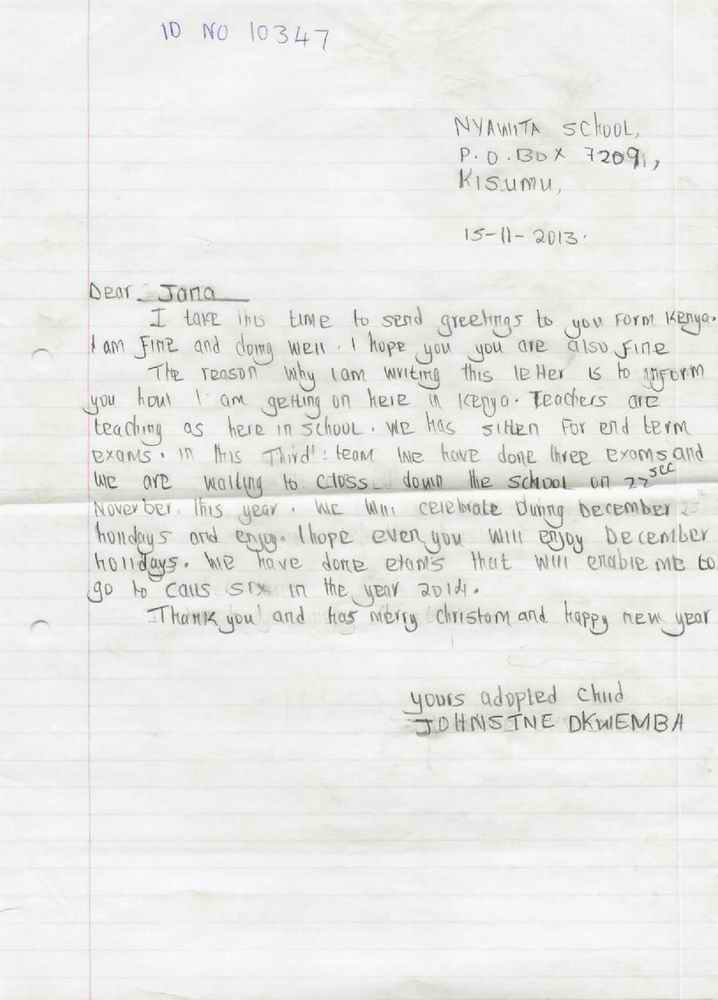 ID NO 10347
NYAWITA SCHOOL,
P.O.BOX 72091,
KISUMU,
15-11-2013.
Dear Jana
I take this time to send greetings to you form Kenya.
I am fine and doing well. I hope you you are also fine
The reason why I am writing this letter is to inform
you how I am getting on here in Kenya. Teachers are
teaching as here in school. We has sitten for end term
exams. in this Third team we have done three exams and
we are waiting to closs down the school on
November this year. We will celebrate During December
holidays and enjoy. I hope even you will enjoy December
holidays. We have done exams that will enable me to
go to calls six in the year 2014.
Thank you and has merry christom and happy new year
yours adopted child
JOHNSTNE OKWEMBA